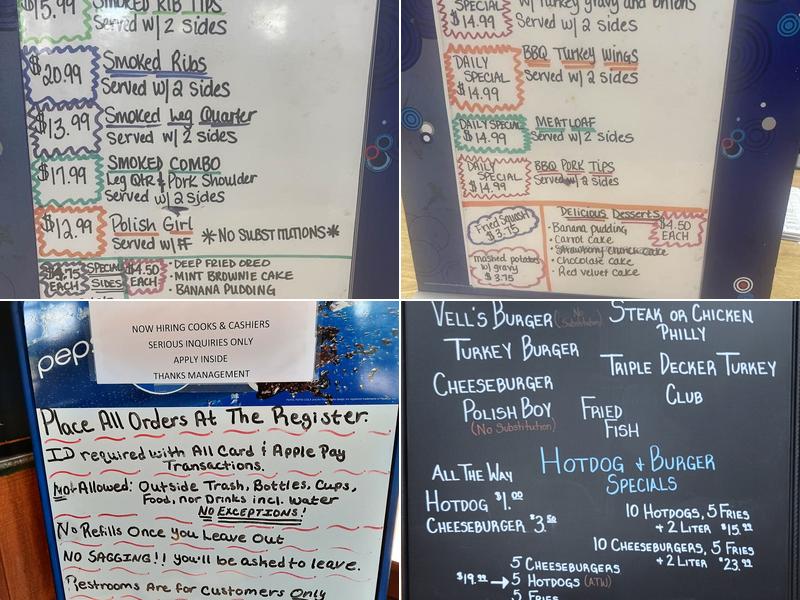 $15.99 SMOKED RIB TIPS
Served w/ 2 sides
$20.99 Smoked Ribs
Served w/ 2 sides
$13.99 Smoked Leg Quarter
Served w/ 2 sides
$17.99 SMOKED COMBO
Leg QTR & Pork Shoulder
Served w/ 2 sides
$12.99 Polish Girl
Served w/ FF *NO SUBSTITUTIONS*
$4.75 EACH SPECIAL SIDES
$4.50 EACH
• DEEP FRIED OREO
• MINT BROWNIE CAKE
• BANANA PUDDING
SPECIAL $14.99
w/ Turkey gravy and onions
Served w/ 2 sides
DAILY SPECIAL $14.99
BBQ Turkey Wings
Served w/ 2 sides
DAILY SPECIAL $14.99
MEATLOAF
Served w/ 2 sides
DAILY SPECIAL $14.99
BBQ PORK TIPS
Served w/ 2 sides
Fried Squash $3.75
mashed potatoes w/ gravy $3.75
Delicious Desserts
$4.50 EACH
• Banana pudding
• Carrot cake
• Strawberry crunch cake
• Chocolate cake
• Red velvet cake
NOW HIRING COOKS & CASHIERS
SERIOUS INQUIRIES ONLY
APPLY INSIDE
THANKS MANAGEMENT
peps
Place All Orders At The Register.
ID required with All Card & Apple Pay
Transactions.
Not Allowed: Outside Trash, Bottles, Cups,
Food, nor Drinks incl. water
NO EXCEPTIONS!
No Refills Once You Leave Out
NO SAGGING!! you'll be asked to leave.
Restrooms Are for Customers Only
VELL'S BURGER (No Substitution)
TURKEY BURGER
CHEESEBURGER
POLISH BOY
(No Substitution)
STEAK OR CHICKEN
PHILLY
TRIPLE DECKER TURKEY
CLUB
FRIED
FISH
HOTDOG & BURGER
SPECIALS
ALL THE WAY
HOTDOG $1.00
CHEESEBURGER $3.50
10 HOTDOGS, 5 FRIES
+ 2 LITER $15.99
10 CHEESEBURGERS, 5 FRIES
+ 2 LITER $23.99
5 CHEESEBURGERS
$19.99 → 5 HOTDOGS (ATW)
5 FRIES